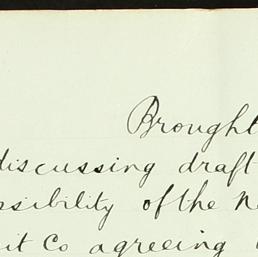 Brought
discussing draft
ssibility of the N
it Co agreeing